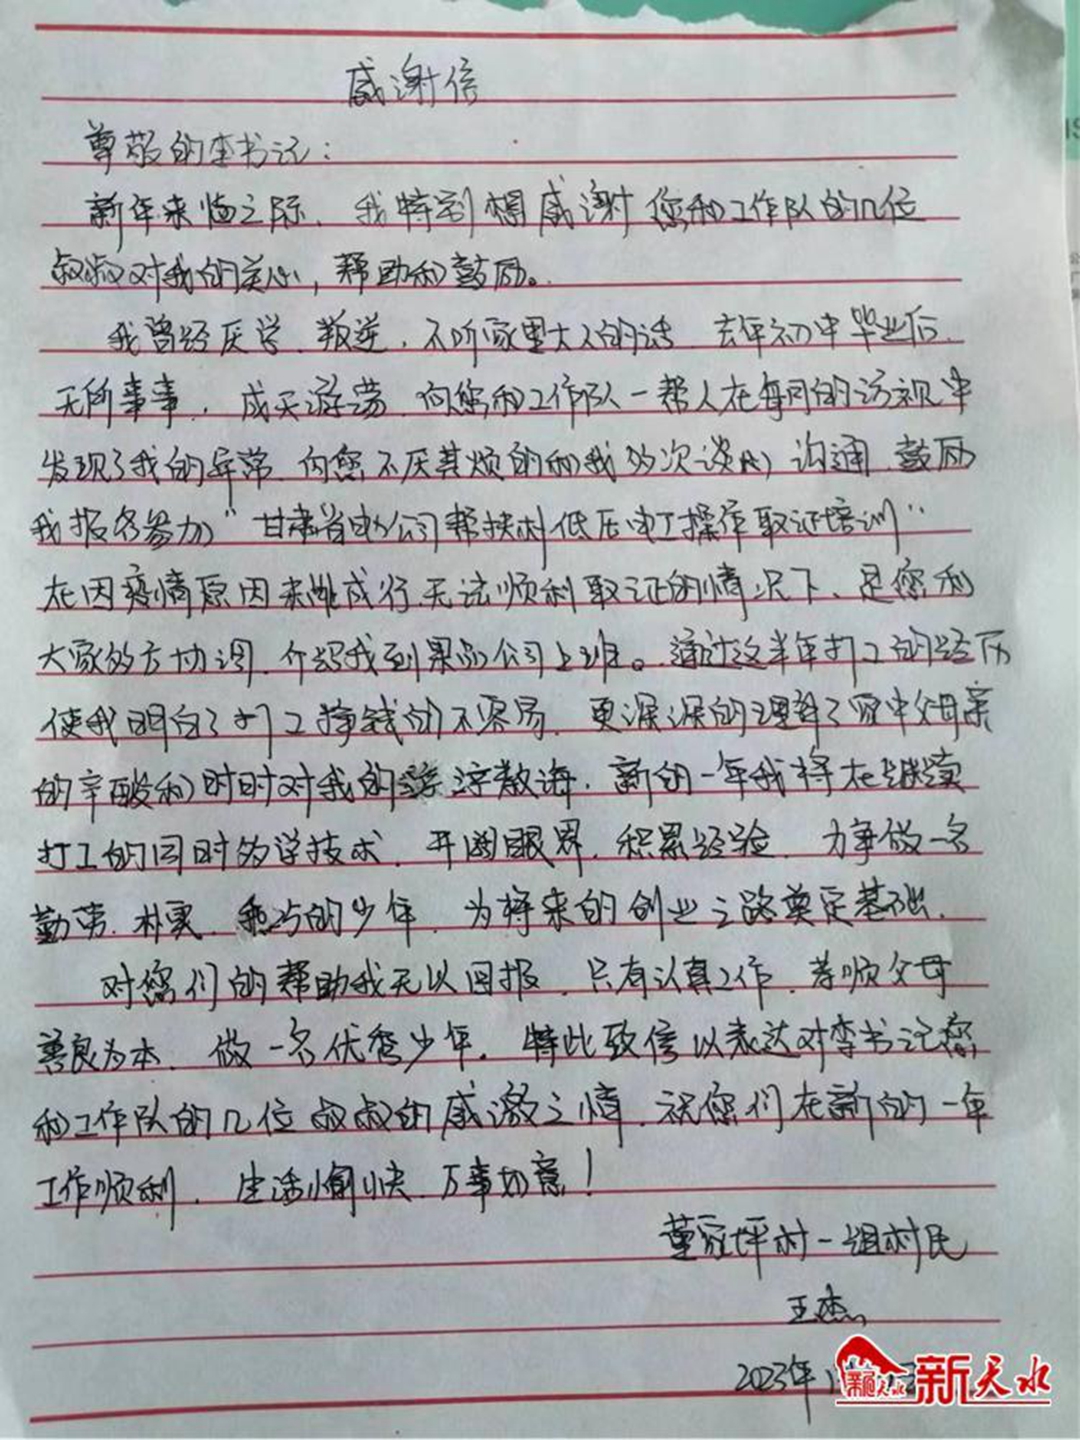 感谢信
尊敬的李书记：
新年来临之际，我特别想感谢您和工作队的几位
叔叔对我的关心，帮助和鼓励。
我曾经厌学、叛逆，不听家里大人的话，去年初中毕业后，
无所事事，成天游荡，而您和工作队一帮人在每月的访视中
发现了我的异常，而您不厌其烦的和我多次谈心，沟通，鼓励
我报名参加“甘肃省电公司帮扶村低压电工操作取证培训”
在因疫情原因未能成行，无法顺利取证的情况下，是您和
大家多方协调，介绍我到果品公司上班。通过这半年打工的经历
使我明白了打工挣钱的不容易，更深深的理解了家中父母亲
的辛酸和时时对我的谆谆教诲，新的一年我将在继续
打工的同时多学技术，开阔眼界，积累经验，力争做一名
勤劳，朴实，的少年，为将来的创业之路奠定基础。
对您们的帮助我无以回报，只有认真工作，孝顺父母
善良为本，做一名优秀少年。特此致信以表达对李书记您
和工作队的几位叔叔的感激之情，祝您们在新的一年
工作顺利，生活愉快，万事如意！
董家坪村一组村民
王杰
2023年1
新天水